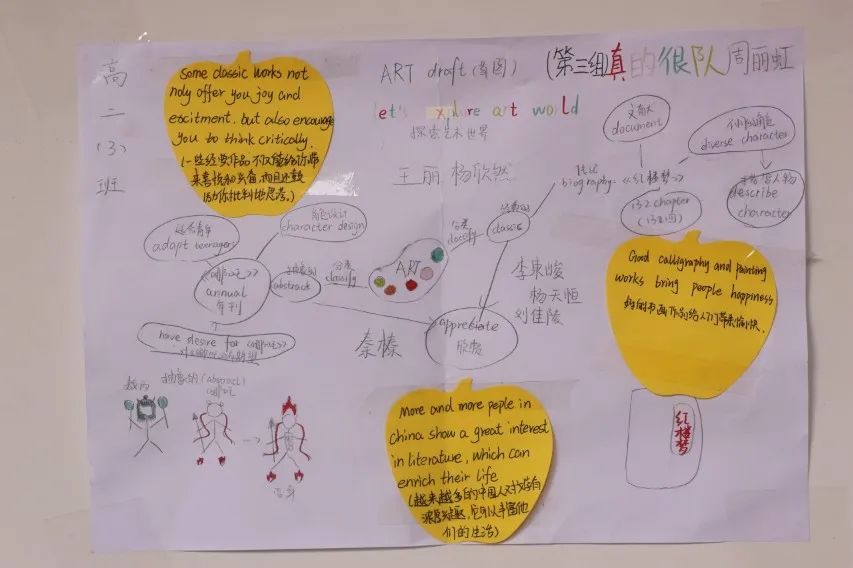 高
二
(3)
班
Some classic works not
noly offer you joy and
excitment, but also encourage
you to think critically.
(一些经典作品不仅能给你带
来喜悦和兴奋,而且还鼓
励你批判性地思考。)
ART draft(草图)
(第三组)真的很队 周丽虹
let's xplore art world
探索艺术世界
王丽 杨欣然
文献
document
diverse character
传记
biography:
《红楼梦》
132 chapter
(132回)
描写人物
describe
character
适合青年
adapt teenager
角色设计
character design
《哪吒》
annual
年刊
抽象的
abstract
分类
classify
ART
分类
classify
经典的
classic
李泉峻
杨天恒
刘佳陵
秦榛
appretiate
欣赏
have desire for《哪吒》
Good calligraphy and painting
works bring people happiness
好的书画作品给人们带来愉快.
抽象的(abstract)
哪吒
More and more peple in
china show a great interest
in literature, which can
enrich their life
(越来越多的中国人对文学有
浓厚兴趣,它可以丰富他
们的生活)
红楼梦